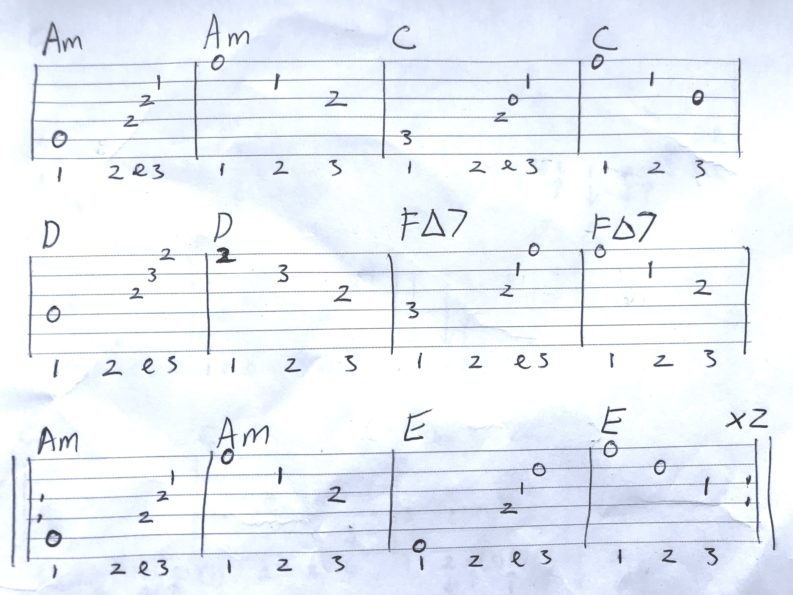 Am Am C C
0 1
1 2
2 0 1
2 0
0 2 2 1 0 1 2 3 2 0 1 0 1 0
1 2 e 3 1 2 3 1 2 e 3 1 2 3
D D F△7 F△7
0 2 3 2 2 3 2 3 2 1 0 0 1 2
1 2 e 3 1 2 3 1 2 e 3 1 2 3
Am Am E E x2
0 2 2 1 0 1 2 0 2 1 0 0 0 1
1 2 e 3 1 2 3 1 2 e 3 1 2 3